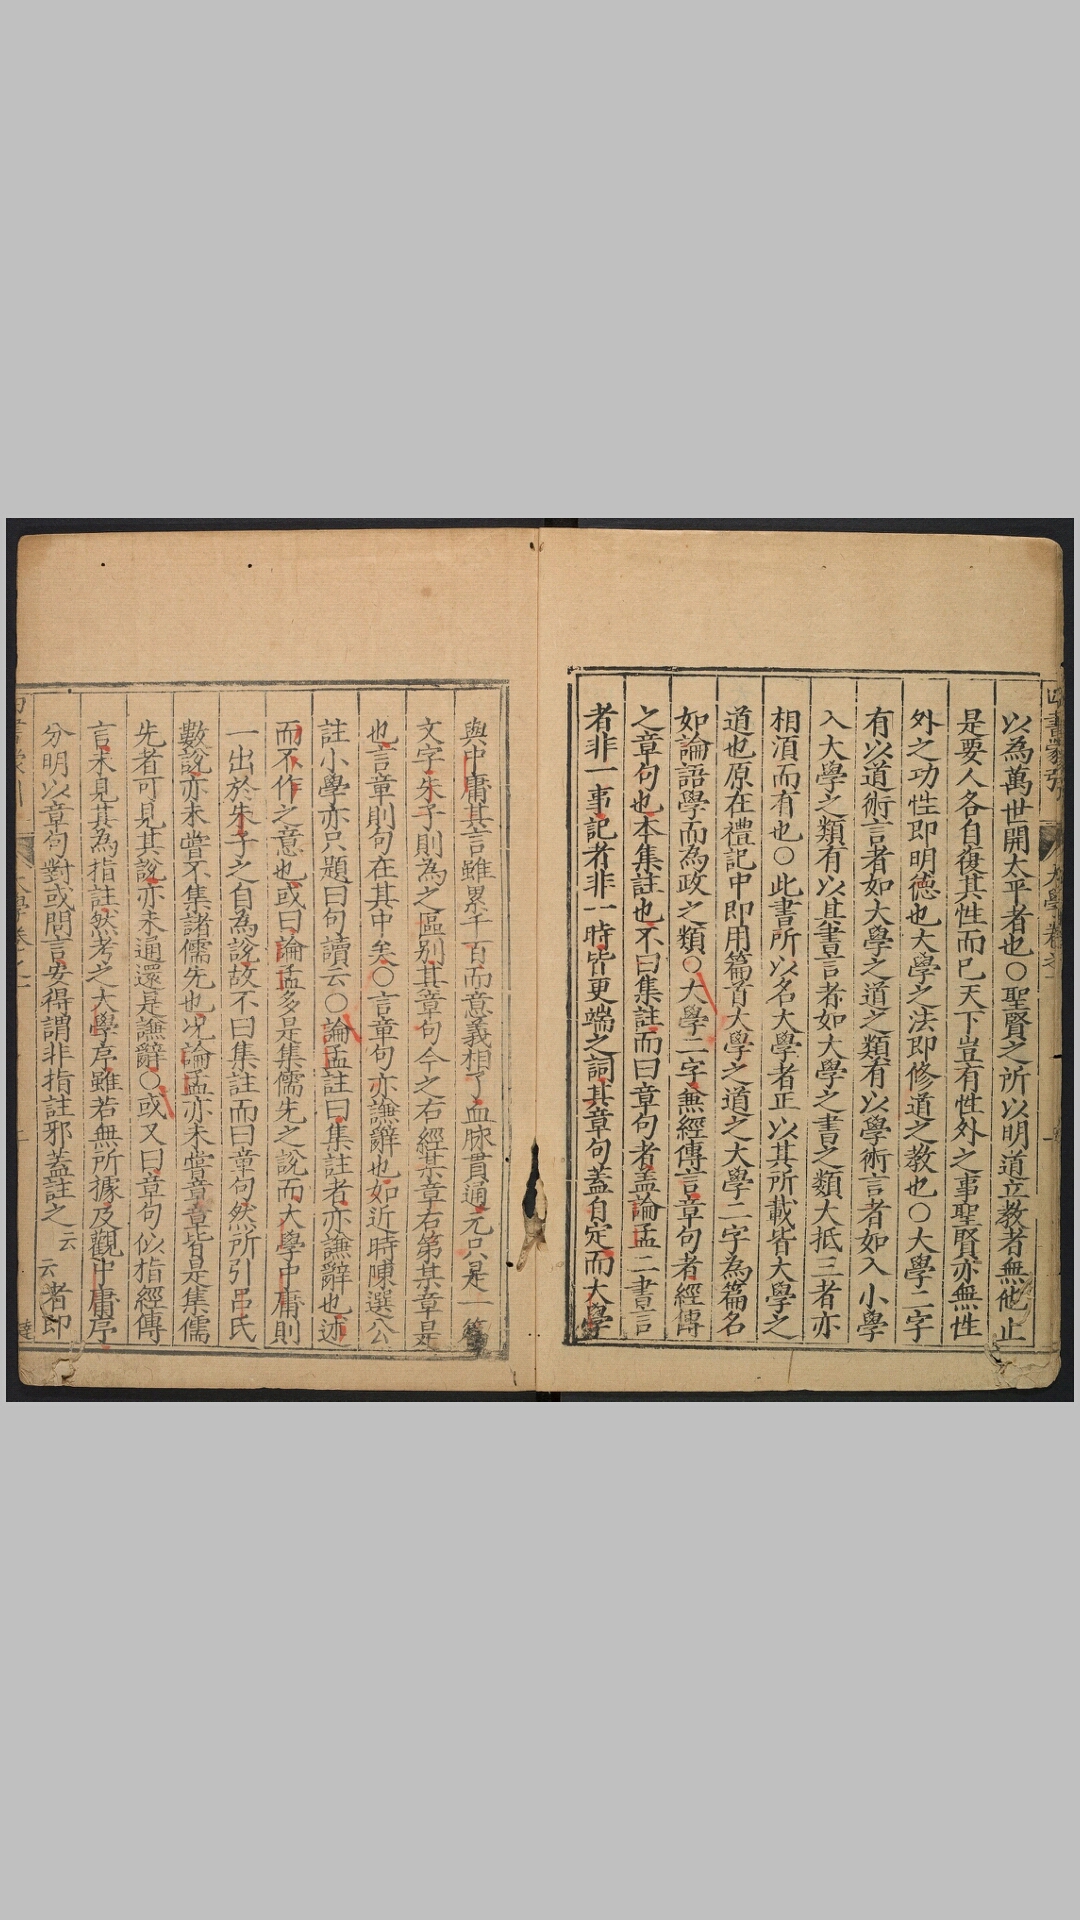 以為萬世開太平者也○聖賢之所以明道立教者無他止
是要人各自復其性而已天下豈有性外之事聖賢亦無性
外之功性即明德也大學之法即修道之教也○大學二字
有以道術言者如大學之道之類有以學術言者如入小學
入大學之類有以其書言者如大學之書之類大抵三者亦
相湏而有也○此書所以名大學者正以其所載皆大學之
道也原在禮記中即用篇首大學之道之大學二字為篇名
如論語學而為政之類○大學二字兼經傳言章句者經傳
之章句也本集註也不曰集註而曰章句者盖論孟二書言
者非一事記者非一時皆更端之詞其章句蓋自定而大學
與中庸其言雖累千百而意義相了血脉貫通元只是一篇
文字朱子則為之區别其章句今之右經某章右第某章是
也言章則句在其中矣○言章句亦謙辭也如近時陳選公
註小學亦只題曰句讀云○論孟註曰集註者亦謙辭也述
而不作之意也或曰論孟多是集儒先之說而大學中庸則
一出於朱子之自為說故不曰集註而曰章句然所引呂氏
數說亦未嘗不集諸儒先也况論孟亦未嘗章章皆是集儒
先者可見其說亦未通還是謙辭○或又曰章句似指經傳
言未見其為指註然考之大學序雖若無所據及觀中庸序
分明以章句對或問言安得謂非指註邪蓋註之云云者即